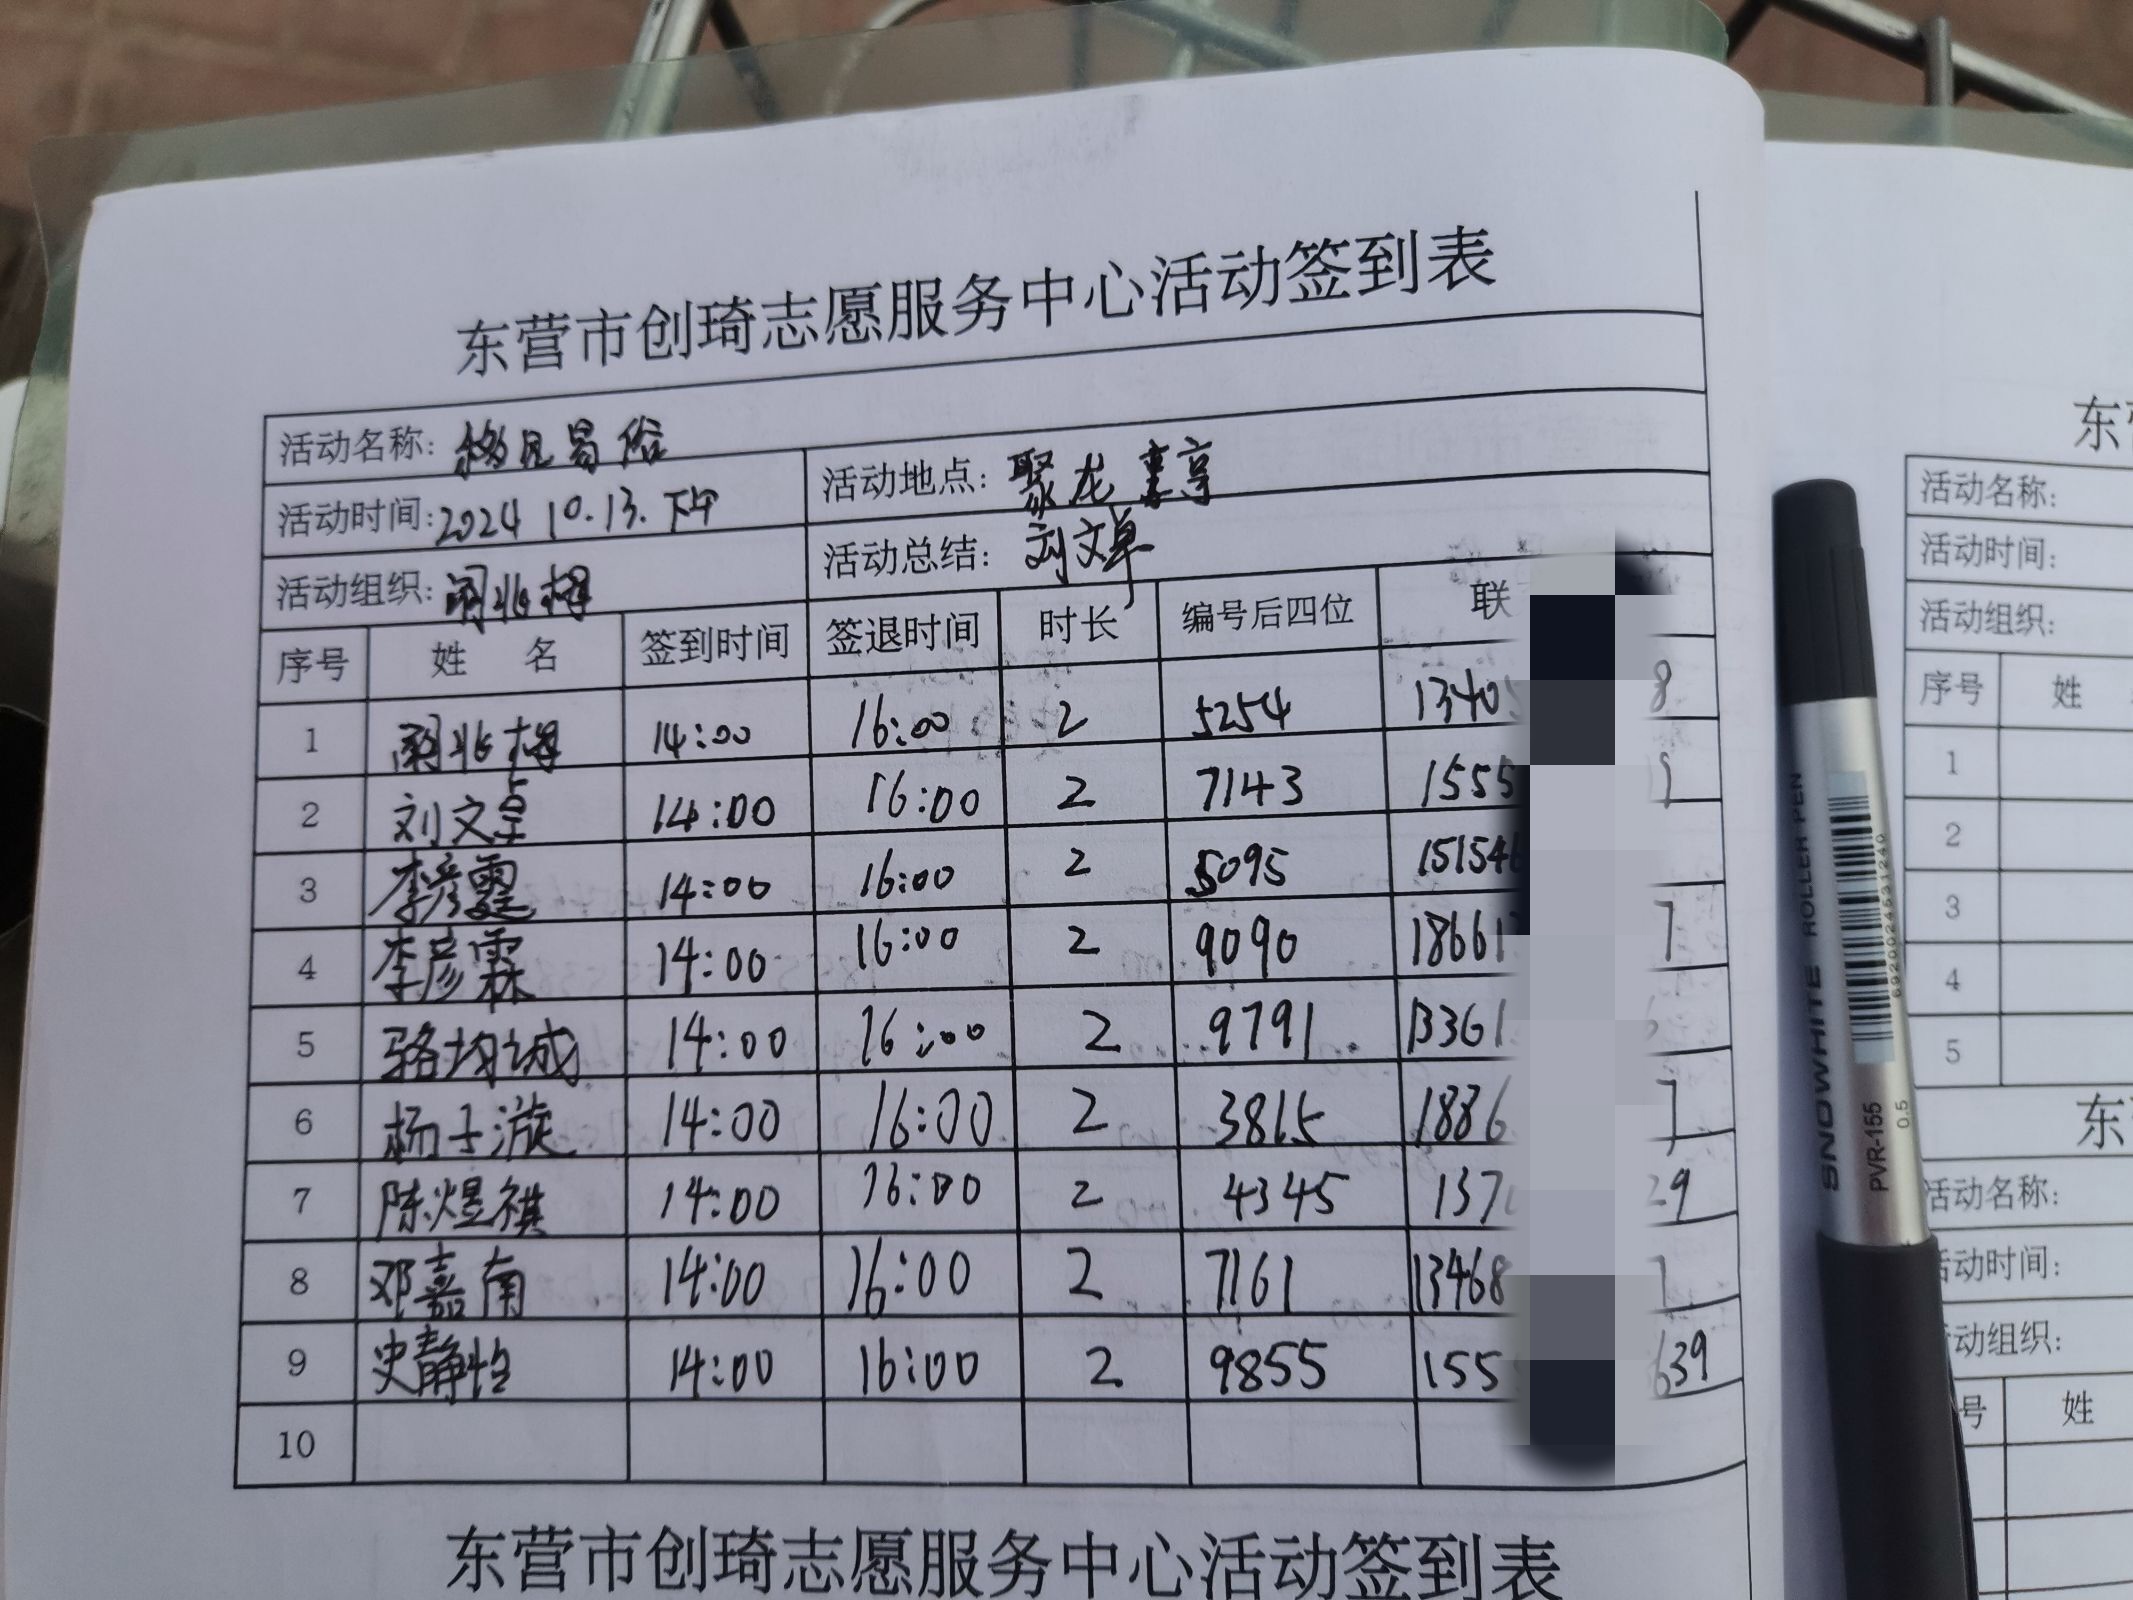 东营市创琦志愿服务中心活动签到表
活动名称: 移风易俗
活动时间: 2024 10.13. 下午 活动地点: 聚龙
活动组织: 活动总结: 刘文卓
序号 姓 名 签到时间 签退时间 时长 编号后四位 联
1 14:00 16:00 2 5254 1340 8
2 刘文卓 14:00 16:00 2 7143 1555
3 李彦霆 14:00 16:00 2 5095 15154
4 李彦霖 14:00 16:00 2 9090 1866 7
5 骆均城 14:00 16:00 2 9791 1336
6 杨子漩 14:00 16:00 2 3815 1886 7
7 陈煜祺 14:00 16:00 2 4345 137 29
8 邓嘉南 14:00 16:00 2 7161 13468
9 史静怡 14:00 16:00 2 9855 155 639
10
东营市创琦志愿服务中心活动签到表
东
活动名称:
活动时间:
活动组织:
序号 姓
1
2
3
4
5
东
活动名称:
活动时间:
活动组织:
号 姓
SNOWHITE ROLLER PEN
PVR-155 0.5
6920024531240